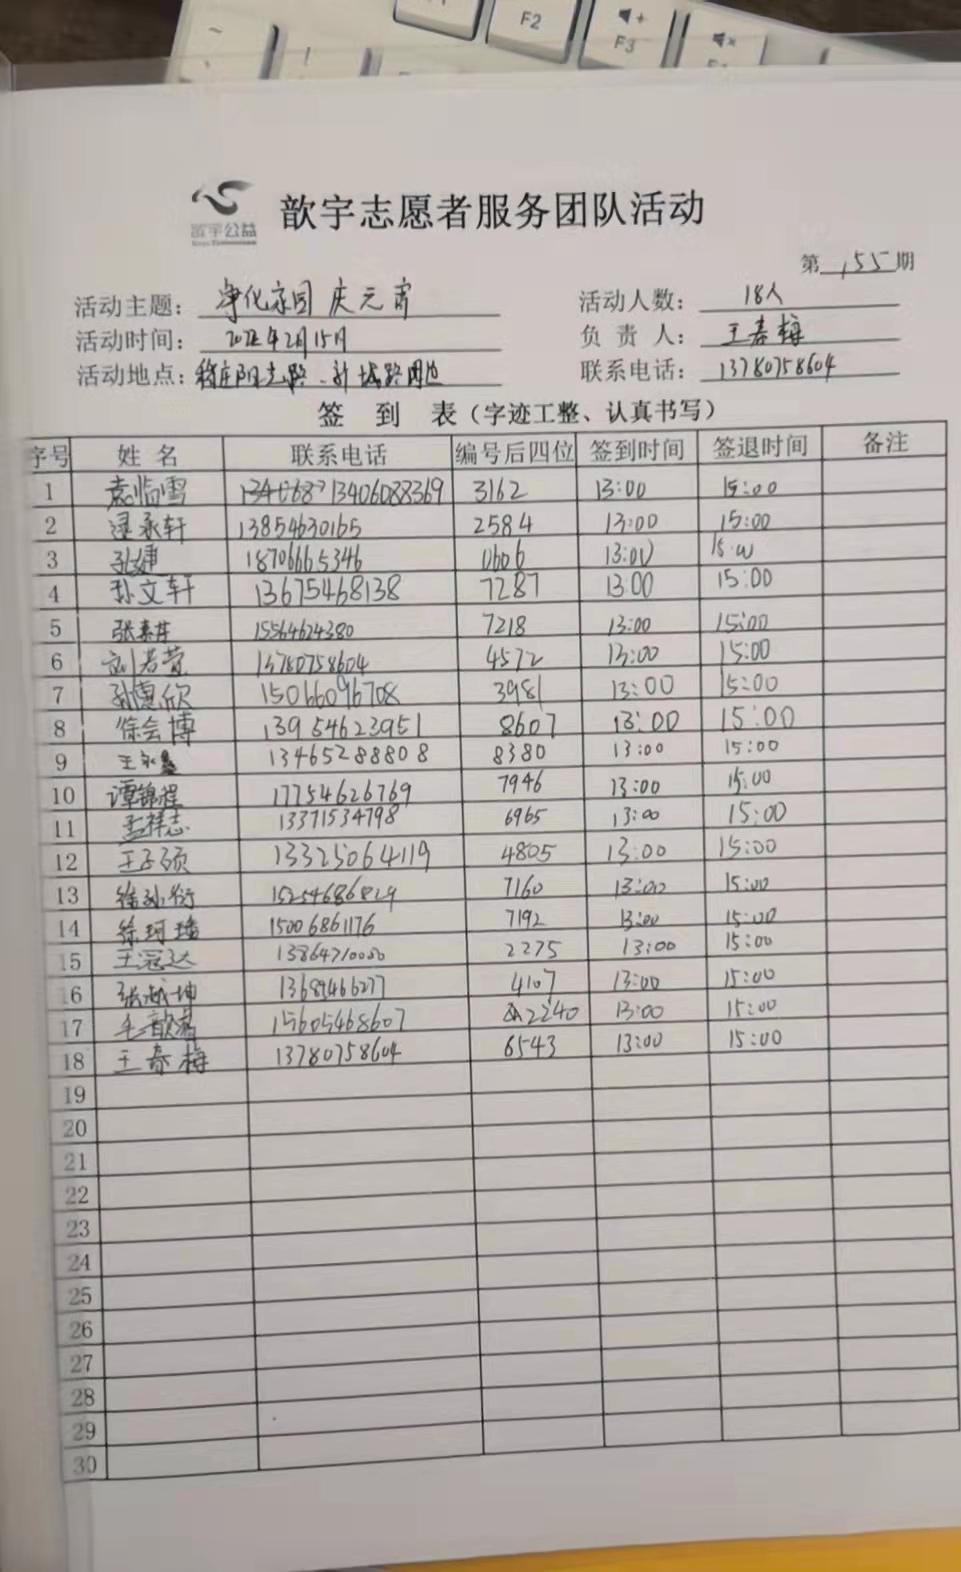 F2
F3
歆宇公益
歆宇志愿者服务团队活动
第 155 期
活动主题： 净化家园 庆元宵
活动人数： 18人
活动时间： 2022年2月15日
负责人： 王春梅
活动地点： 路周边
联系电话： 13780758604
签 到 表（字迹工整、认真书写）
序号 姓名 联系电话 编号后四位 签到时间 签退时间 备注
1 袁临雪 13406088369 3162 13:00 15:00
2 逯承轩 13854630165 2584 13:00 15:00
3 18706665346 0606 13:00 15:00
4 孙文轩 13675468138 7287 13:00 15:00
5 15564624380 7218 13:00 15:00
6 刘若萱 13780758604 4572 13:00 15:00
7 孙惠欣 15066096708 3981 13:00 15:00
8 徐会博 13954623951 8607 13:00 15:00
9 王永鑫 13465288808 8380 13:00 15:00
10 谭锦程 17754626769 7946 13:00 15:00
11 孟祥志 13371534798 6965 13:00 15:00
12 王子硕 13325064119 4805 13:00 15:00
13 徐孙衍 15254686829 7160 13:00 15:00
14 徐珂璠 15006861176 7192 13:00 15:00
15 王冠达 2275 13:00 15:00
16 4107 13:00 15:00
17 毛歆若 15605468607 2240 13:00 15:00
18 王春梅 13780758604 6543 13:00 15:00
19
20
21
22
23
24
25
26
27
28
29
30